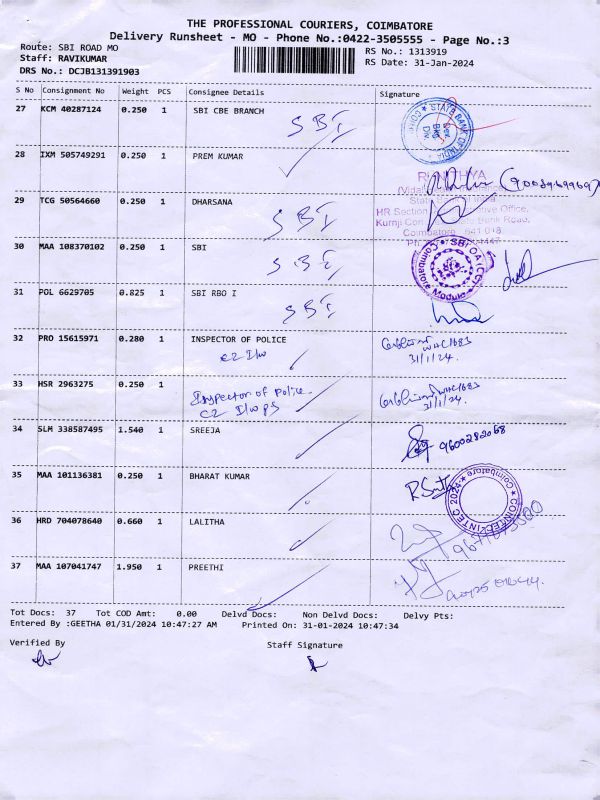 THE PROFESSIONAL COURIERS, COIMBATORE
Delivery Runsheet - MO - Phone No.:0422-3505555 - Page No.:3
Route: SBI ROAD MO
RS No.: 1313919
Staff: RAVIKUMAR
RS Date: 31-Jan-2024
DRS No.: DCJB131391903
S No Consignment No Weight PCS Consignee Details Signature
27 KCM 40287124 0.250 1 SBI CBE BRANCH
SBI
STATE BANK OF INDIA
28 IXM 505749291 0.250 1 PREM KUMAR
29 TCG 50564660 0.250 1 DHARSANA
SBI
30 MAA 108370102 0.250 1 SBI
SBI
31 POL 6629705 0.825 1 SBI RBO I
SBI
32 PRO 15615971 0.280 1 INSPECTOR OF POLICE
31/1/24.
33 HSR 2963275 0.250 1
Inspector of Police
31/1/24.
34 SLM 338587495 1.540 1 SREEJA
9600282068
35 MAA 101136381 0.250 1 BHARAT KUMAR
COINTEC * INTEC 2024 * Coimbatore
36 HRD 704078640 0.660 1 LALITHA
37 MAA 107041747 1.950 1 PREETHI
Tot Docs: 37 Tot COD Amt: 0.00 Delvd Docs: Non Delvd Docs: Delvy Pts:
Entered By :GEETHA 01/31/2024 10:47:27 AM Printed On: 31-01-2024 10:47:34
Verified By Staff Signature